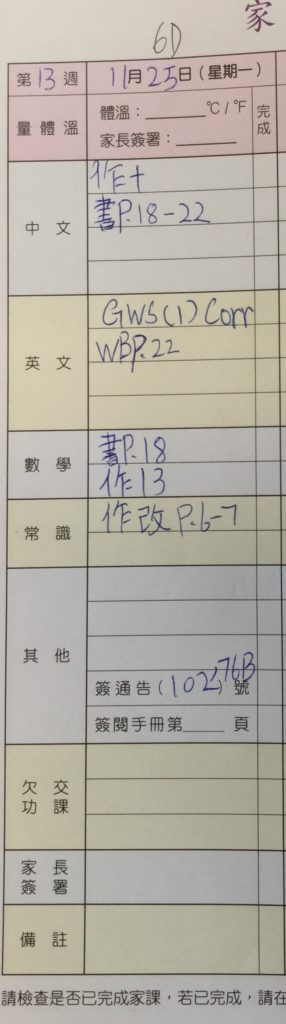 家
6D
第13週 11月25日(星期一)
量體溫 體溫:______°C/°F 完成
家長簽署:______
中文 作十
書P.18-22
英文 GWS(1) Corr
WBP.22
數學 書P.18
作13
常識 作改 P.6-7
其他
簽通告(102, 76B)號
簽閱手冊第____頁
欠交功課
家長簽署
備註
請檢查是否已完成家課,若已完成,請在